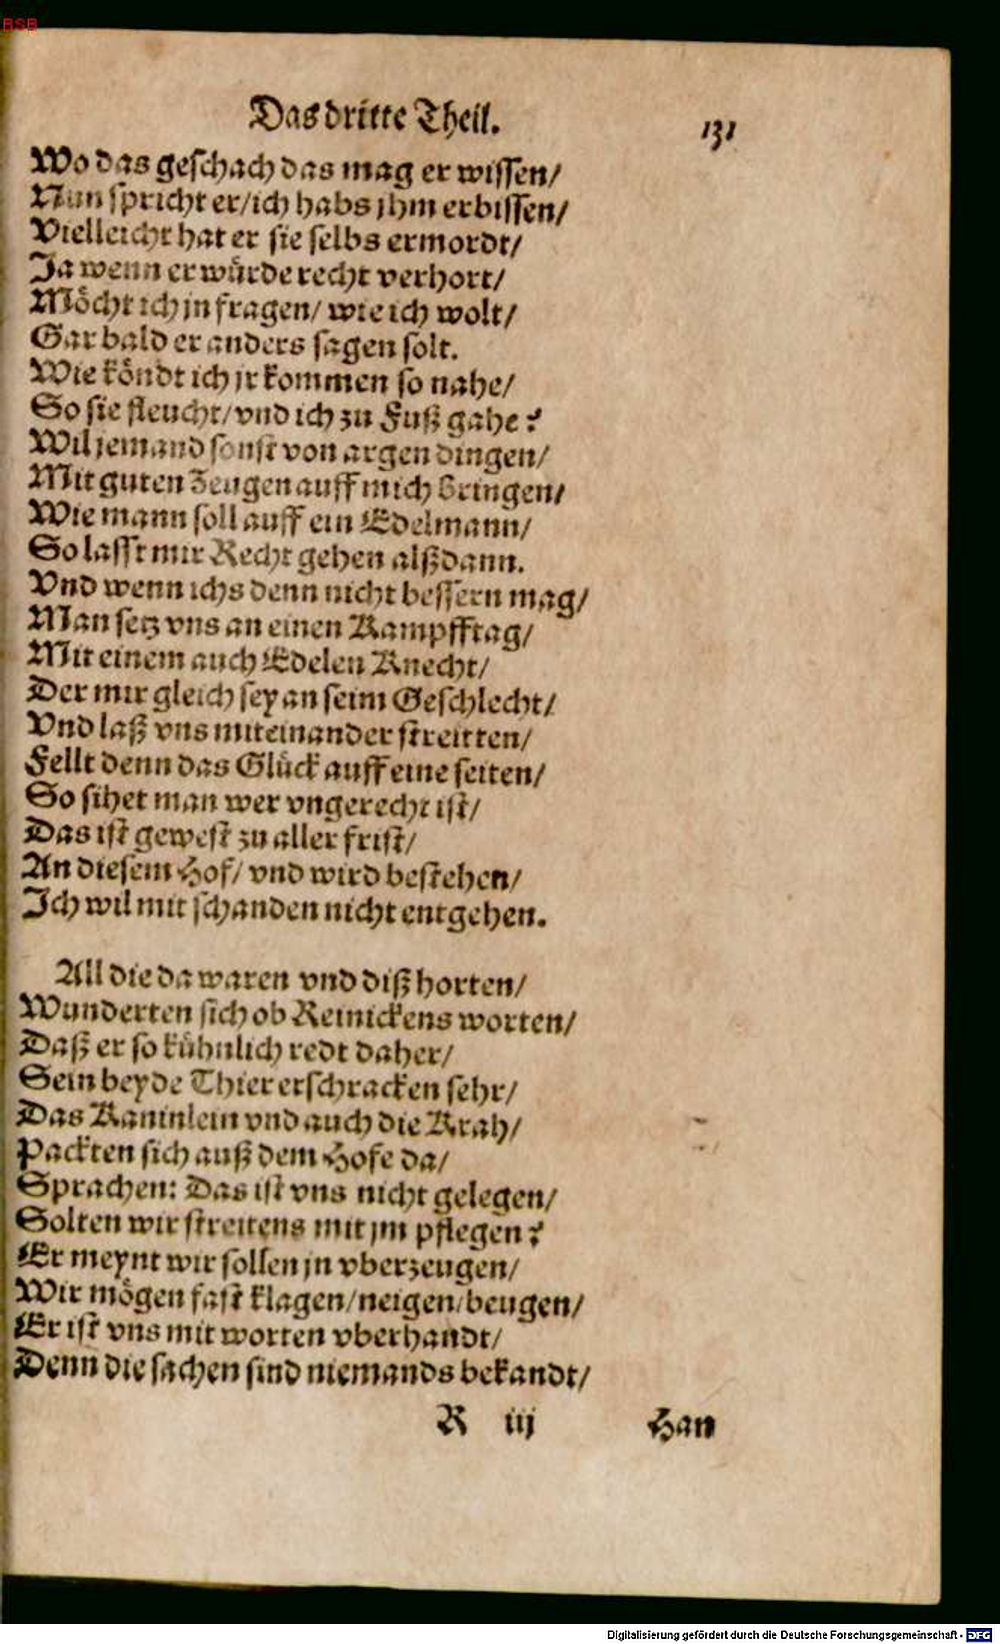 BSB
Das dritte Theil. 131
Wo das geschach das mag er wissen/
Nun spricht er/ich habs jhm erbissen/
Vielleicht hat er sie selbs ermordt/
Ja wenn er würde recht verhort/
Möcht ich jn fragen/ wie ich wolt/
Gar bald er anders sagen solt.
Wie köndt ich jr kommen so nahe/
So sie fleucht/vnd ich zu Fuß gahe?
Wil jemand sonst von argen dingen/
Mit guten Zeugen auff mich bringen/
Wie mann soll auff ein Edelmann/
So lasst mir Recht gehen alßdann.
Vnd wenn ichs denn nicht bessern mag/
Man setz vns an einen Kampfftag/
Mit einem auch Edelen Knecht/
Der mir gleich sey an seim Geschlecht/
Vnd laß vns miteinander streitten/
Fellt denn das Glück auff eine seiten/
So sihet man wer vngerecht ist/
Das ist gewest zu aller frist/
An diesem Hof/ vnd wird bestehen/
Ich wil mit schanden nicht entgehen.
All die da waren vnd diß horten/
Wunderten sich ob Reinickens worten/
Daß er so kühnlich redt daher/
Sein beyde Thier erschracken sehr/
Das Kaninlein vnd auch die Krah/
Packten sich auß dem Hofe da/
Sprachen: Das ist vns nicht gelegen/
Solten wir streitens mit jm pflegen?
Er meynt wir sollen jn vberzeugen/
Wir mögen fast klagen/neigen/beugen/
Er ist vns mit worten vberhandt/
Denn die sachen sind niemands bekandt/
R iij Han
Digitalisierung gefördert durch die Deutsche Forschungsgemeinschaft - DFG